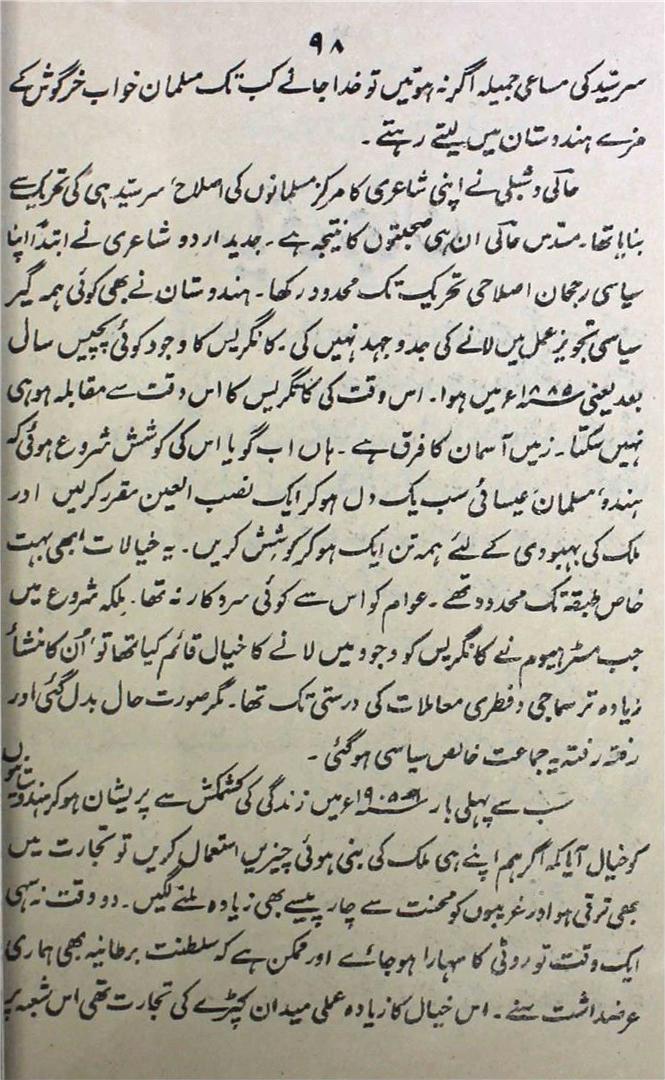 ۹۸
سرسیّد کی مساعی جمیلہ اگر نہ ہوتیں تو خدا جانے کب تک مسلمان خواب خرگوش کے
مزے ہندوستان میں لیتے رہتے ۔
حالی و شبلی نے اپنی شاعری کا مرکز مسلمانوں کی اصلاح، سرسیّد ہی کی تحریک سے
بنایا تھا۔ مسدّس حالی ان ہی صحبتوں کا نتیجہ ہے ۔ جدید اردو شاعری نے ابتدًا اپنا
سیاسی رجحان اصلاحی تحریک تک محدود رکھا۔ ہندوستان نے بھی کوئی ہمہ گیر
سیاسی تجویز عمل میں لانے کی جدوجہد نہیں کی ۔ کانگریس کا وجود کوئی پچیس سال
بعد یعنی ۱۸۸۵ء میں ہوا۔ اس وقت کی کانگریس کا اس وقت سے مقابلہ ہو ہی
نہیں سکتا۔ زمین آسمان کا فرق ہے ۔ ہاں اب گویا اس کی کوشش شروع ہوئی کہ
ہندو، مسلمان، عیسائی سب یک دل ہو کر ایک نصب العین مقرر کرلیں اور
ملک کی بہبودی کے لئے ہمہ تن ایک ہو کر کوشش کریں ۔ یہ خیالات ابھی بہت
خاص طبقہ تک محدود تھے ۔ عوام کو اس سے کوئی سروکار نہ تھا۔ بلکہ شروع میں
جب مسٹر ہیوم نے کانگریس کو وجود میں لانے کا خیال قائم کیا تھا تو، اُن کا منشأ
زیادہ تر سماجی و فطری معاملات کی درستی تک تھا۔ مگر صورت حال بدل گئی اور
رفتہ رفتہ یہ جماعت خالص سیاسی ہو گئی ۔
سب سے پہلی بار ۱۹۰۵ء میں زندگی کی کشمکش سے پریشان ہو کر ہندوستانیوں
کو خیال آیا کہ اگر ہم اپنے ہی ملک کی بنی ہوئی چیزیں استعمال کریں تو تجارت میں
بھی ترقی ہو اور غریبوں کو محنت سے چار پیسے بھی زیادہ ملنے لگیں ۔ دو وقت نہ سہی
ایک وقت تو روٹی کا سہارا ہو جائے اور ممکن ہے کہ سلطنت برطانیہ بھی ہماری
عرضداشت سنے ۔ اس خیال کا زیادہ عملی میدان کپڑے کی تجارت تھی اس شعبہ پر